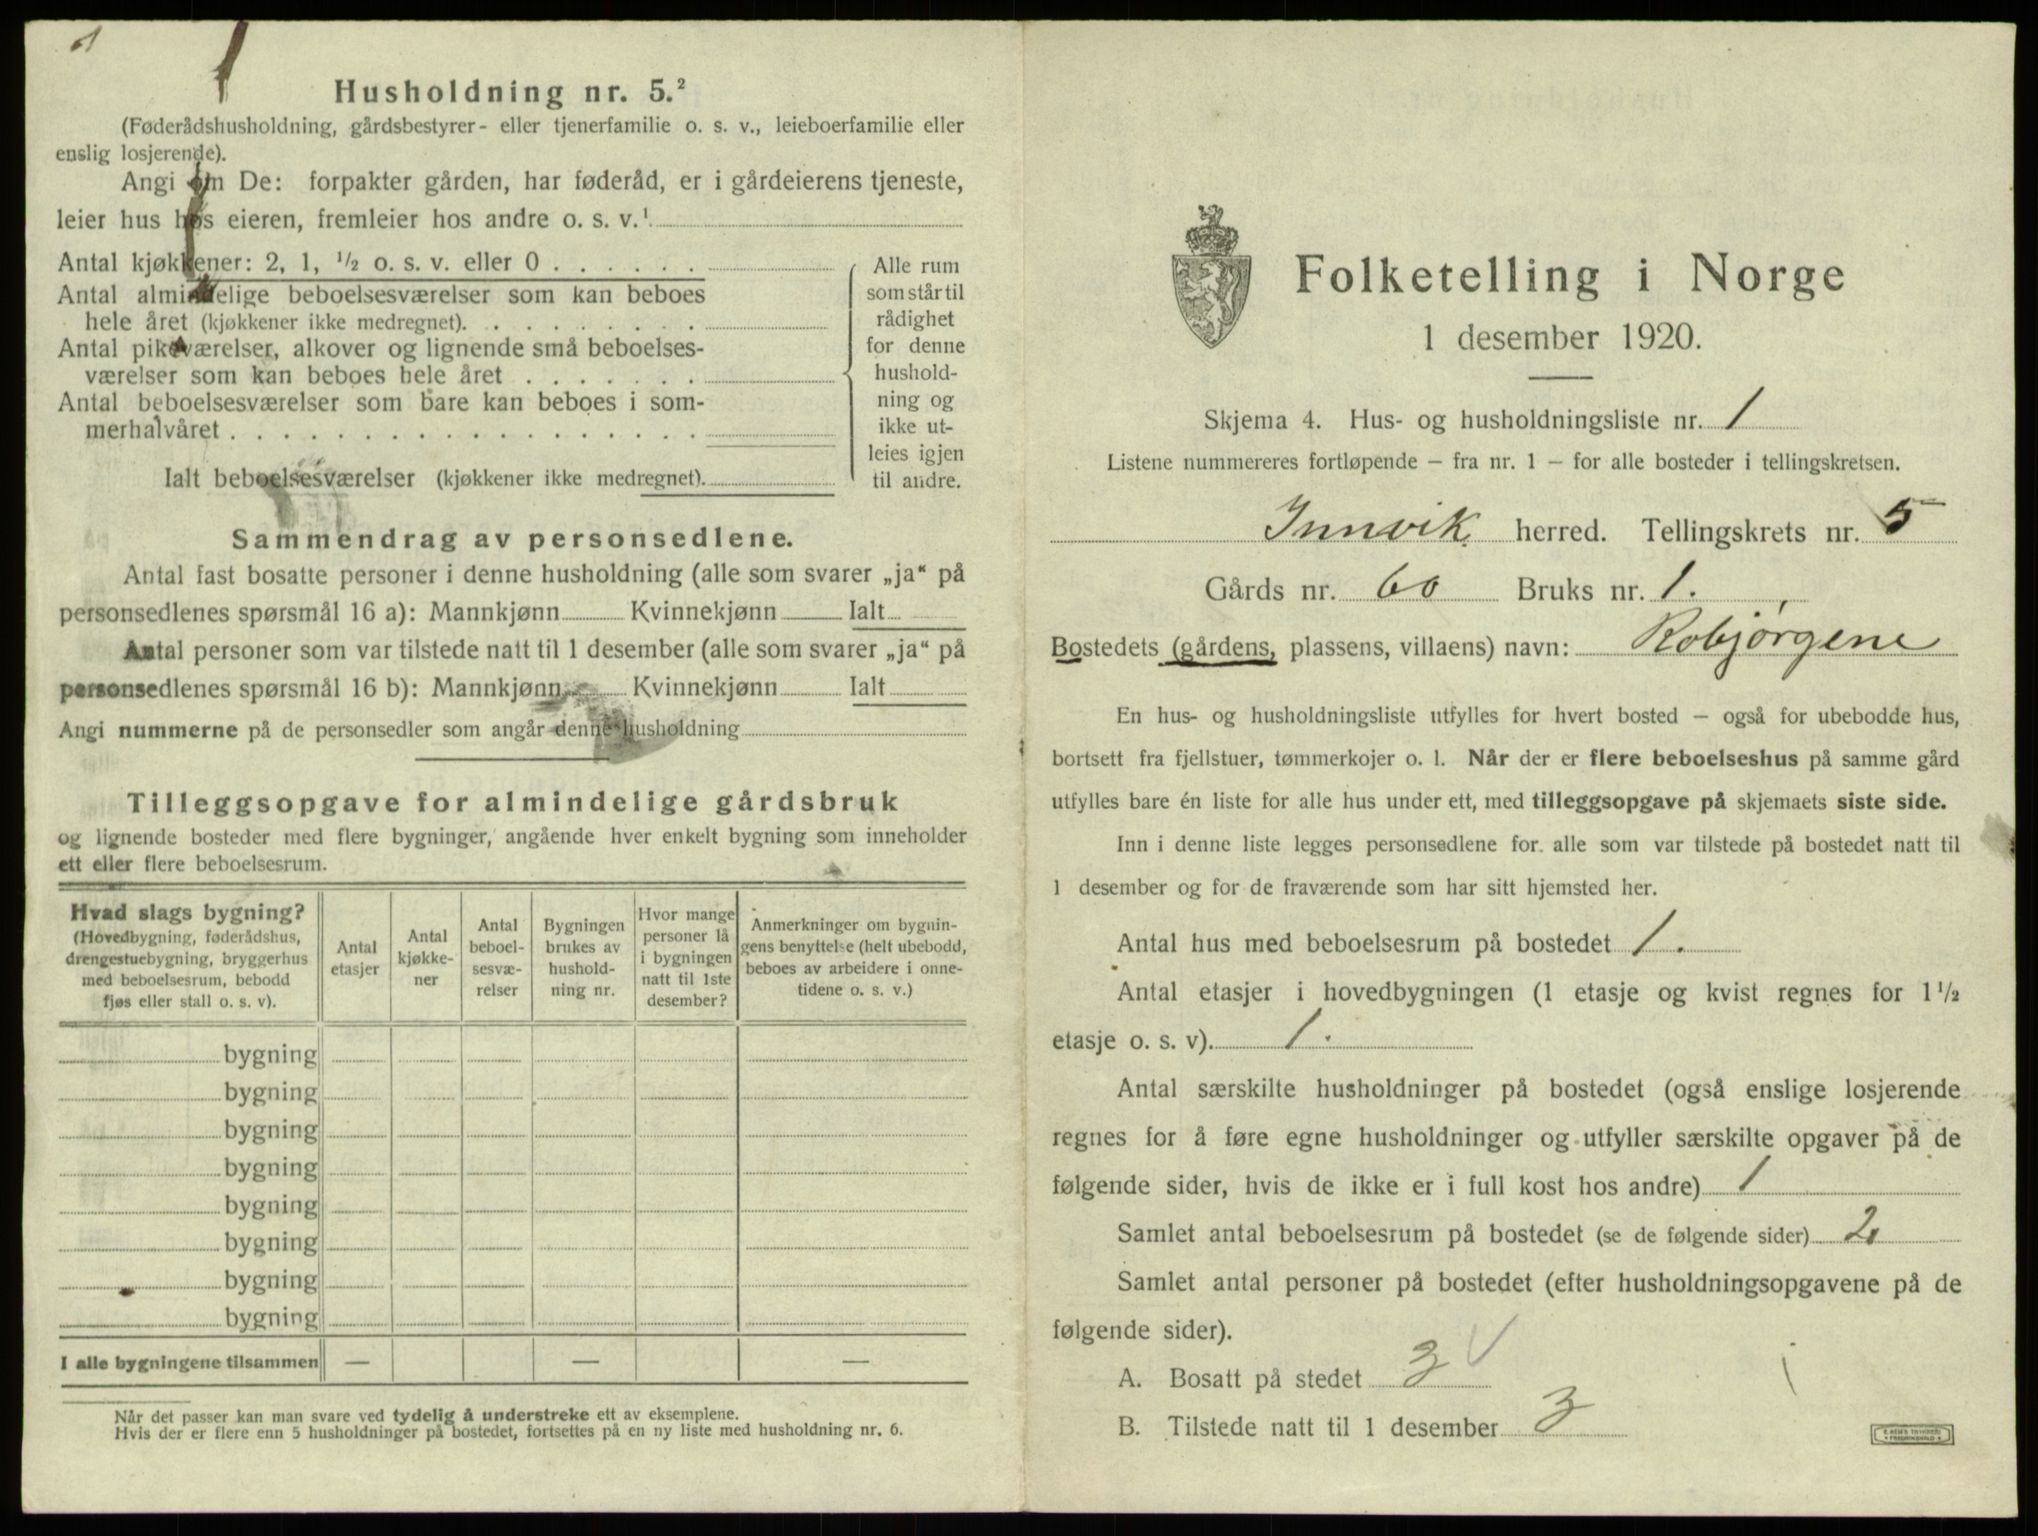 Husholdning nr. 5.²
(Føderådshusholdning, gårdsbestyrer- eller tjenerfamilie o. s. v., leieboerfamilie eller
enslig losjerende).
Angi om De: forpakter gården, har føderåd, er i gårdeierens tjeneste,
leier hus hos eieren, fremleier hos andre o. s. v.¹
Antal kjøkkener: 2, 1, ½ o. s. v. eller 0 . . . . . .
Antal almindelige beboelsesværelser som kan beboes
hele året (kjøkkener ikke medregnet). . . . . . . . .
Antal pikeværelser, alkover og lignende små beboelses-
værelser som kan beboes hele året . . . . . . .
Antal beboelsesværelser som bare kan beboes i som-
merhalvåret . . . . . . . . . . . . . . . . . .
Ialt beboelsesværelser (kjøkkener ikke medregnet).
Alle rum
som står til
rådighet
for denne
hushold-
ning og
ikke ut-
leies igjen
til andre.
Sammendrag av personsedlene.
Antal fast bosatte personer i denne husholdning (alle som svarer „ja“ på
personsedlenes spørsmål 16 a): Mannkjønn Kvinnekjønn Ialt
Antal personer som var tilstede natt til 1 desember (alle som svarer „ja“ på
personsedlenes spørsmål 16 b): Mannkjønn Kvinnekjønn Ialt
Angi nummerne på de personsedler som angår denne husholdning
Tilleggsopgave for almindelige gårdsbruk
og lignende bosteder med flere bygninger, angående hver enkelt bygning som inneholder
ett eller flere beboelsesrum.
Hvad slags bygning?
(Hovedbygning, føderådshus,
drengestuebygning, bryggerhus
med beboelsesrum, bebodd
fjøs eller stall o. s. v).
Antal
etasjer
Antal
kjøkke-
ner
Antal
beboel-
sesvæ-
relser
Bygningen
brukes av
hushold-
ning nr.
Hvor mange
personer lå
i bygningen
natt til 1ste
desember?
Anmerkninger om bygnin-
gens benyttelse (helt ubebodd,
beboes av arbeidere i onne-
tidene o. s. v.)
bygning
bygning
bygning
bygning
bygning
bygning
bygning
bygning
I alle bygningene tilsammen — — —
Når det passer kan man svare ved tydelig å understreke ett av eksemplene.
Hvis der er flere enn 5 husholdninger på bostedet, fortsettes på en ny liste med husholdning nr. 6.
Folketelling i Norge
1 desember 1920.
Skjema 4. Hus- og husholdningsliste nr. 1
Listene nummereres fortløpende – fra nr. 1 – for alle bosteder i tellingskretsen.
Innvik herred. Tellingskrets nr. 5
Gårds nr. 60 Bruks nr. 1.
Bostedets (gårdens, plassens, villaens) navn: Robjørgene
En hus- og husholdningsliste utfylles for hvert bosted – også for ubebodde hus,
bortsett fra fjellstuer, tømmerkojer o. l. Når der er flere beboelseshus på samme gård
utfylles bare én liste for alle hus under ett, med tilleggsopgave på skjemaets siste side.
Inn i denne liste legges personsedlene for alle som var tilstede på bostedet natt til
1 desember og for de fraværende som har sitt hjemsted her.
Antal hus med beboelsesrum på bostedet 1.
Antal etasjer i hovedbygningen (1 etasje og kvist regnes for 1½
etasje o. s. v). 1.
Antal særskilte husholdninger på bostedet (også enslige losjerende
regnes for å føre egne husholdninger og utfyller særskilte opgaver på de
følgende sider, hvis de ikke er i full kost hos andre) 1
Samlet antal beboelsesrum på bostedet (se de følgende sider) 2
Samlet antal personer på bostedet (efter husholdningsopgavene på de
følgende sider).
A. Bosatt på stedet 3
B. Tilstede natt til 1 desember 3